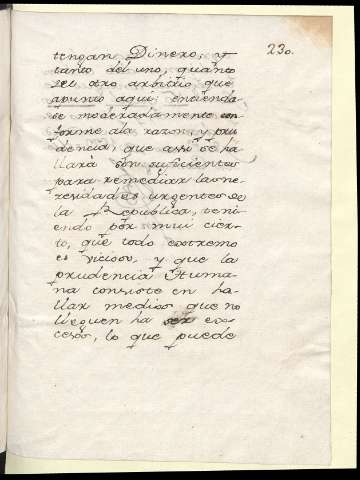 230.
tengan Dinero, y
tanto del uno, quanto
del otro arbitrio que
apunto aqui, entienda
se moderadamente con
forme ala razon, y pru
dencia, que assi se ha
llará son suficientes
para remediar las ne
cesidades urgentes de
la Republica, teni
endo por mui cier
to, que todo extremo
es vicioso, y que la
prudencia Huma
na consiste en ha
llar medios que no
lleguen ha ser ex
cesos, lo que puede